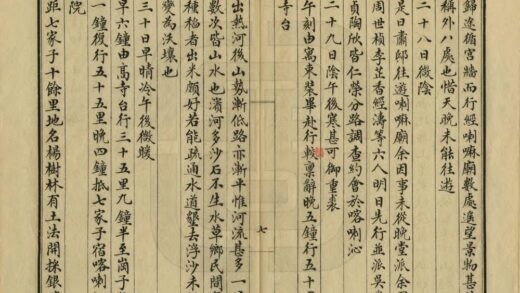 歸途循宮牆而行經喇嘛廟數處遙望景物甚
稱外八處也惜天晚未能往遊
二十八日微陰
是日肅邸往遊喇嘛廟余因事未從晚堂派余
周世楨李芷香經濤等六人明日先行並派吳
貞陶欣皆仁榮分路調查約會於喀喇沁
二十九日陰午後寒甚可御重裘
午刻由寓束裝畢赴行轅稟辭晚五鐘行五十
寺台
七
出熱河後山勢漸低路亦漸平惟河流甚多一
數次皆山水也濱河多沙石不生水草鄉民間
種稻者出米願好若能疏通水道墾去浮沙未
變為沃壤也
三十日早晴冷午後微暖
早六鐘由高寺台行三十五里九鐘半至崗子
一鐘復行五十五里晚四鐘抵七家子宿喀喇
院
距七家子十餘里地名楊樹林有土法開採銀